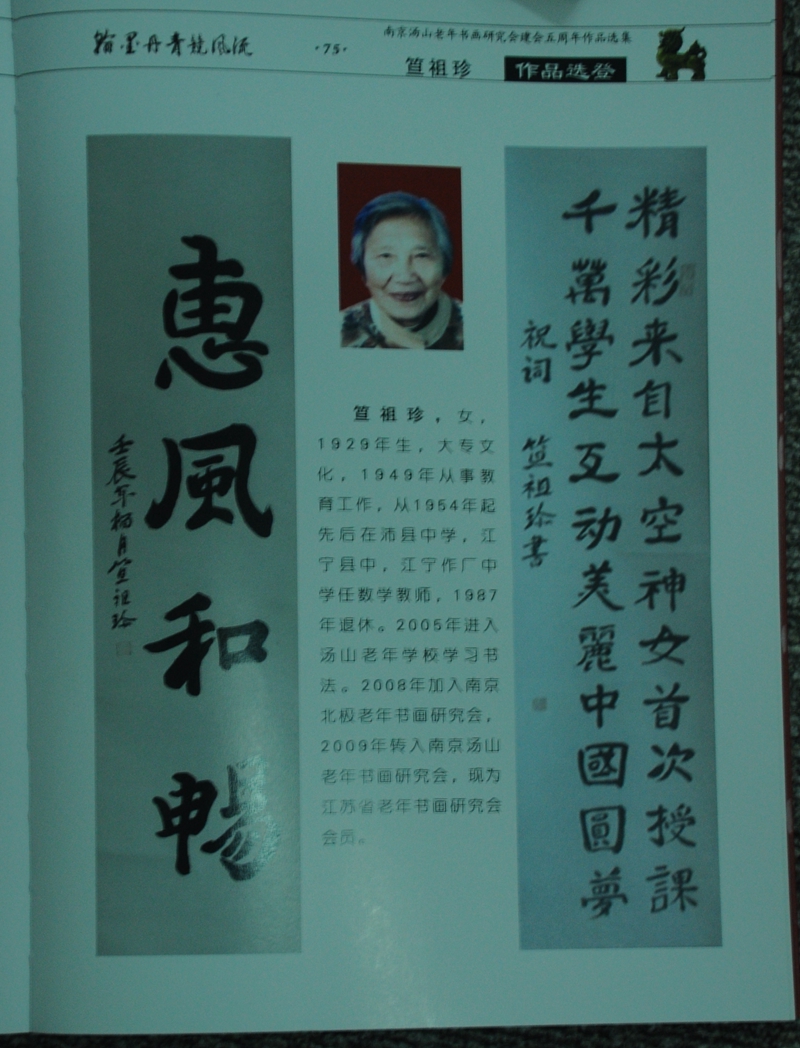 翰墨丹青竞风流
·75·
南京汤山老年书画研究会建会五周年作品选集
笪祖珍
作品选登
惠风和暢
壬辰年杨月笪祖珍
笪祖珍，女，
1929年生，大专文
化，1949年从事教
育工作，从1954年起
先后在沛县中学，江
宁县中，江宁作厂中
学任数学教师，1987
年退休。2005年进入
汤山老年学校学习书
法。2008年加入南京
北极老年书画研究会，
2009年转入南京汤山
老年书画研究会，现为
江苏省老年书画研究会
会员。
精彩来自太空神女首次授課
千萬學生互动美麗中國圓夢
祝词 笪祖珍書